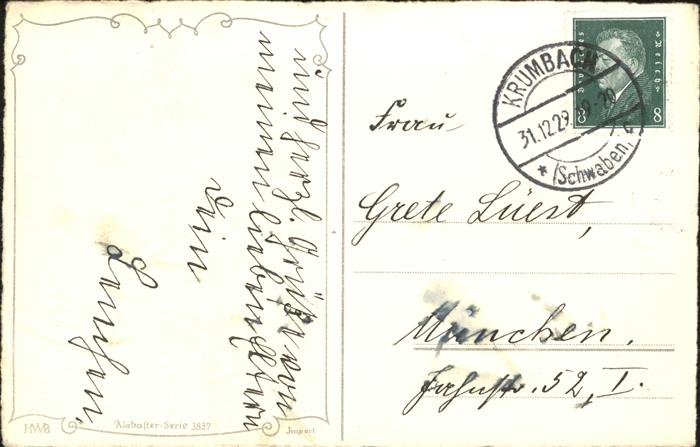 und herzl. Grüße von
meinen lieben Eltern
Dein
Lenchen.
HWB
Alabaster-Serie 3837
Import
Deutsches Reich
8 8
KRUMBACH
31.12.29. 19-20
* (Schwaben)
Frau
Grete Lüerst,
München.
52, I.